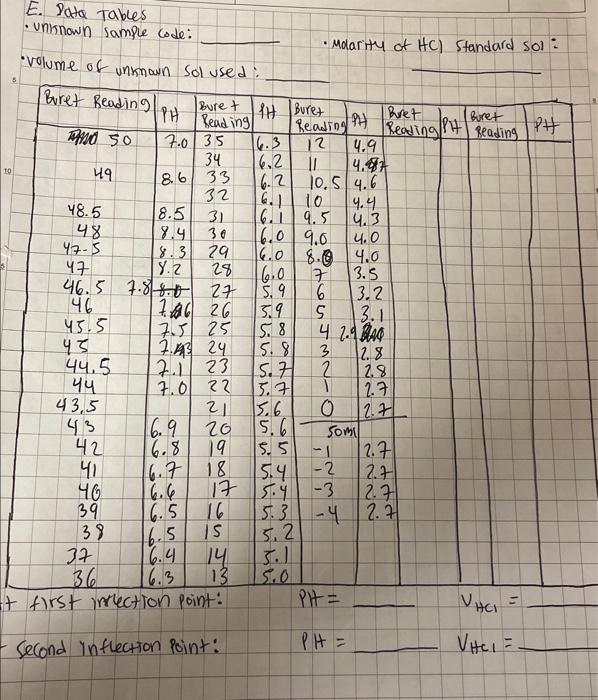 E. Data Tables
• unknown sample code:
• Molarity of HCl standard sol:
• volume of unknown sol used:
Buret Reading PH Buret Reading PH Buret Reading PH Buret Reading PH Buret Reading PH
50 7.0 35 6.3 12 4.9
34 6.2 11
49 8.6 33 6.2 10.5 4.6
32 6.1 10 4.4
48.5 8.5 31 6.1 9.5 4.3
48 8.4 30 6.0 9.0 4.0
47.5 8.3 29 6.0 8.0 4.0
47 8.2 28 6.0 7 3.5
46.5 7.8 27 5.9 6 3.2
46 26 5.9 5 3.1
45.5 7.5 25 5.8 4 2.9
45 24 5.8 3 2.8
44.5 7.1 23 5.7 2 2.8
44 7.0 22 5.7 1 2.7
43.5 21 5.6 0 2.7
43 6.9 20 5.6 50ml
42 6.8 19 5.5 -1 2.7
41 6.7 18 5.4 -2 2.7
40 6.6 17 5.4 -3 2.7
39 6.5 16 5.3 -4 2.7
38 6.5 15 5.2
37 6.4 14 5.1
36 6.3 13 5.0
first inflection point: PH = VHCl =
second inflection Point: PH = VHCl =